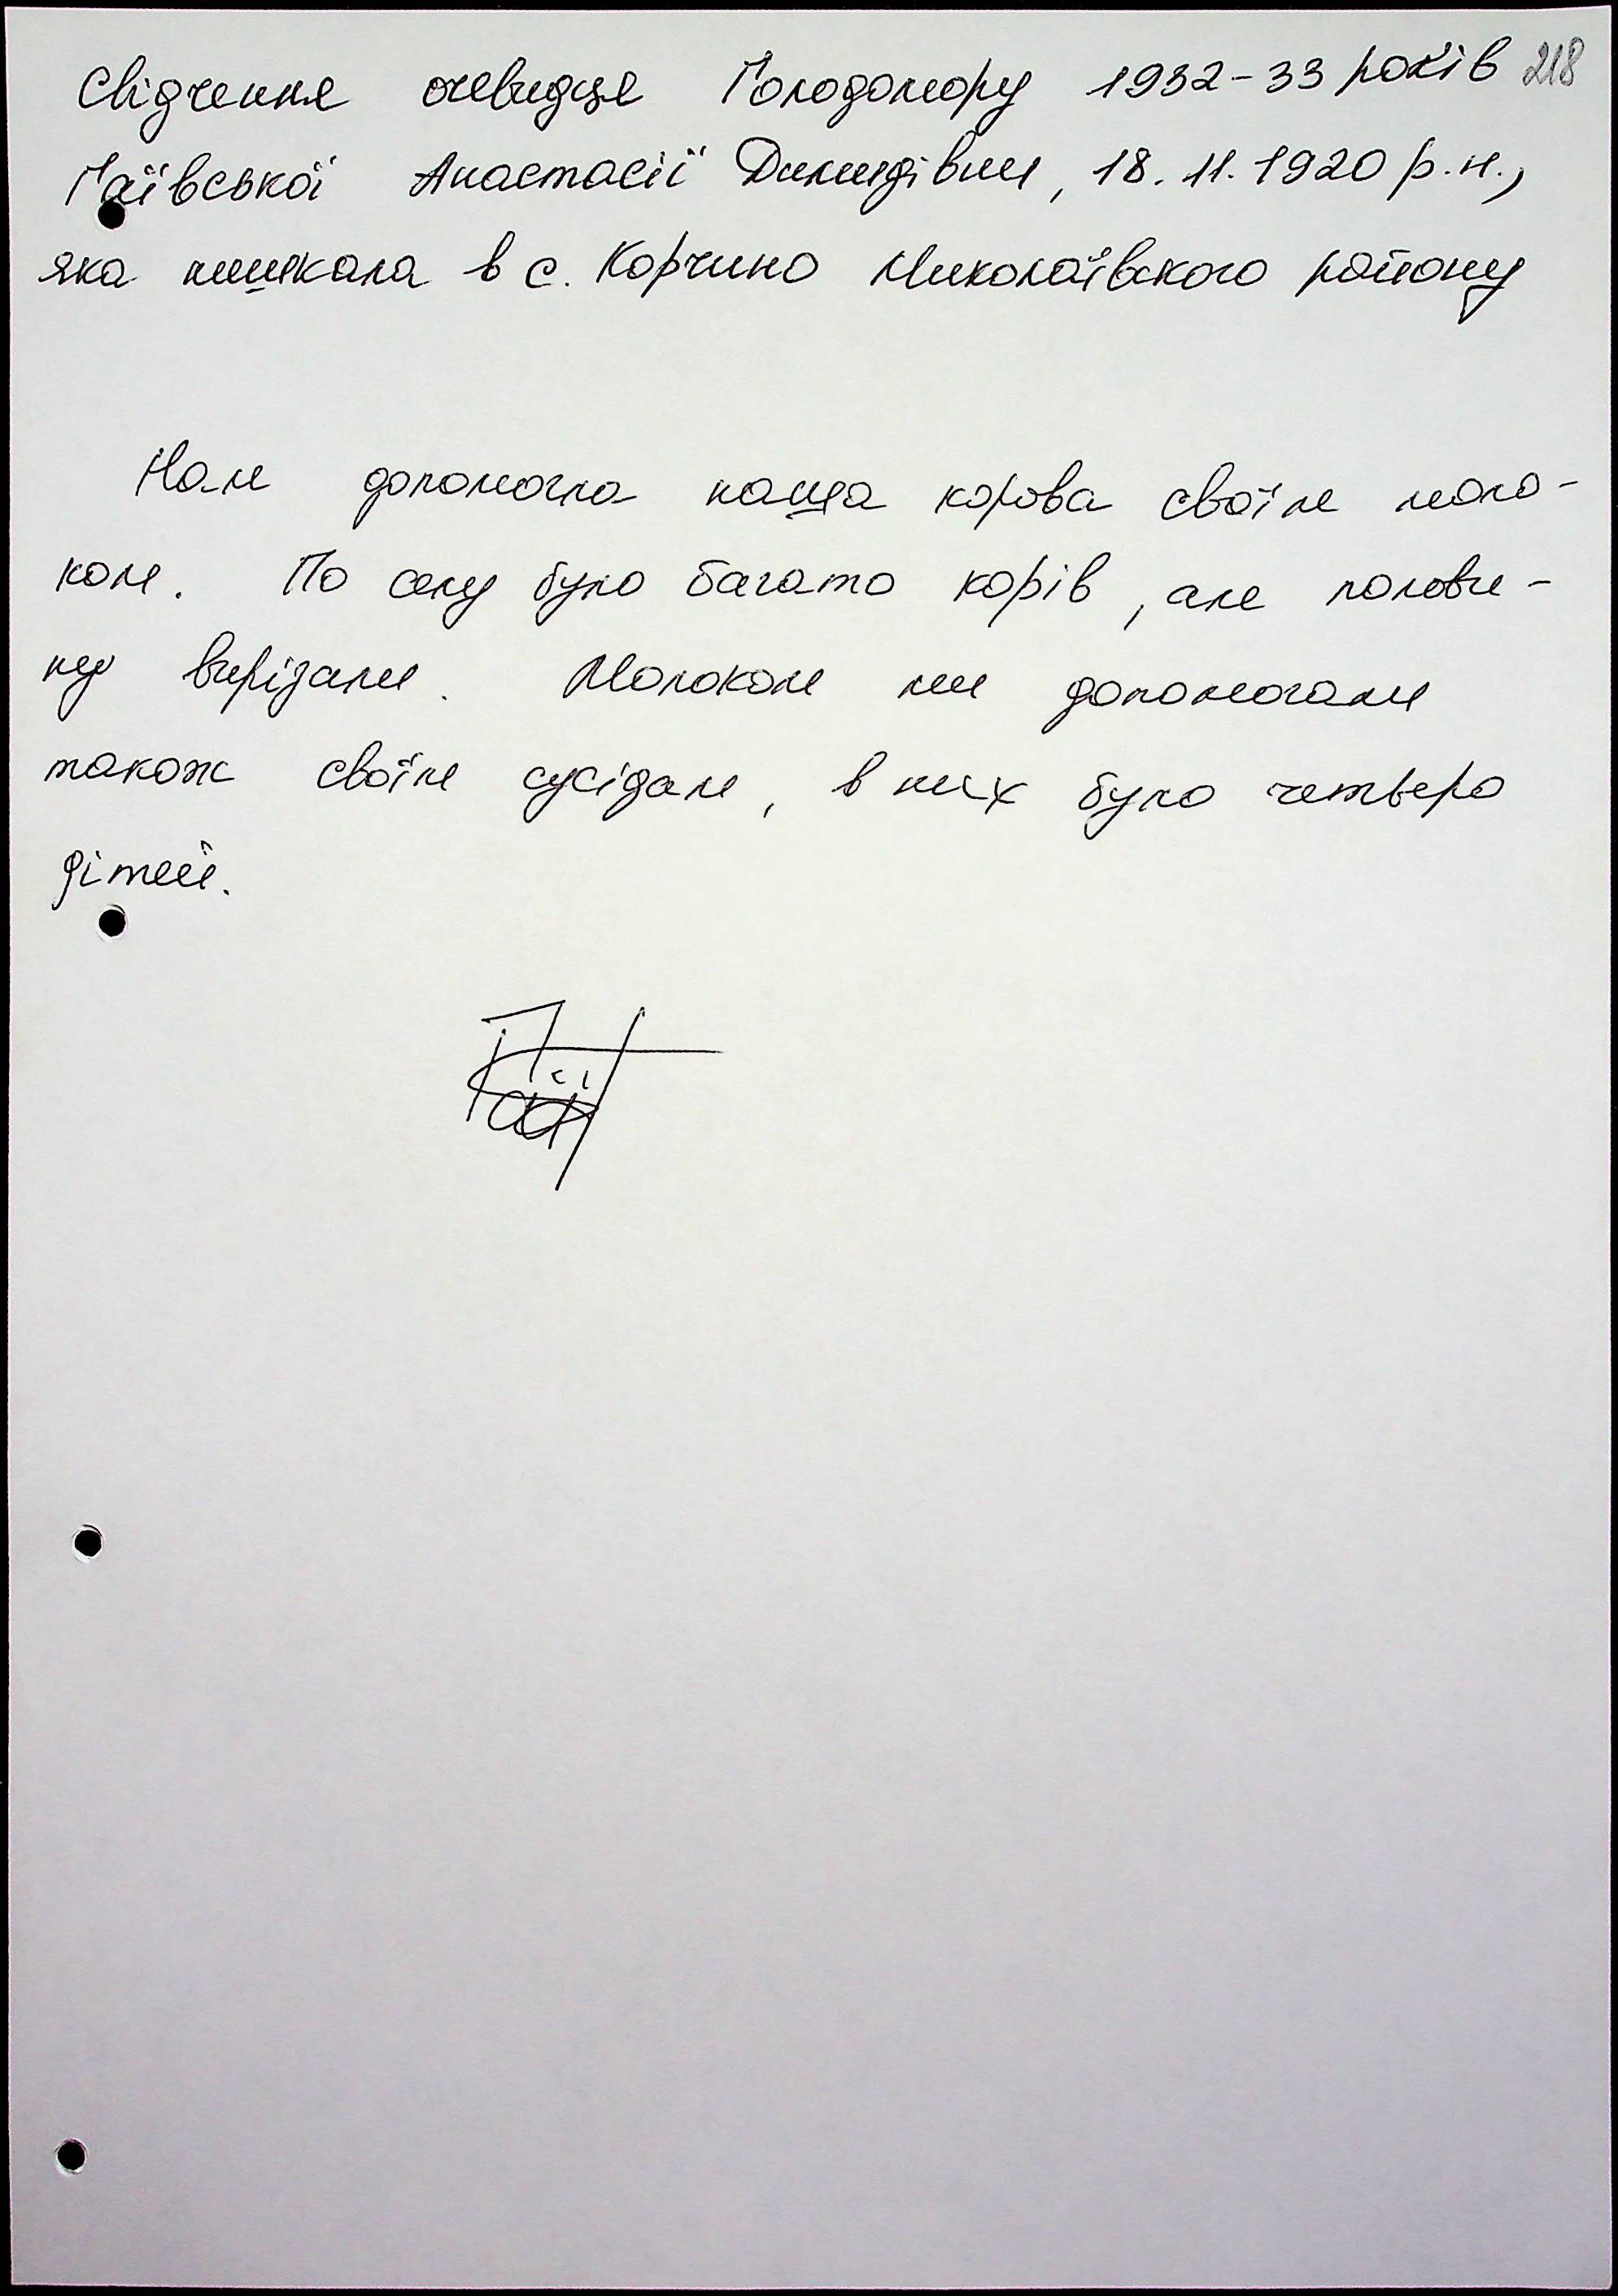 Свідчення очевидця Голодомору 1932-33 років 218
Гаївської Анастасії Демидівни, 18.11.1920 р.н.,
яка мешкала в с. Корчино Миколаївского району
Нам допомогла наша корова своїм моло-
ком. По селу було багато корів, але полови-
ну вирізали. Молоком ми допомогали
також своїм сусідам, в них було четверо
дітей.